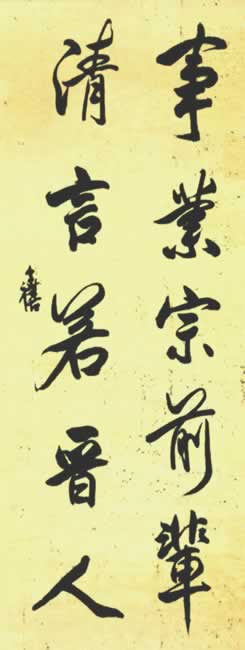 事業宗前輩
清言若晉人